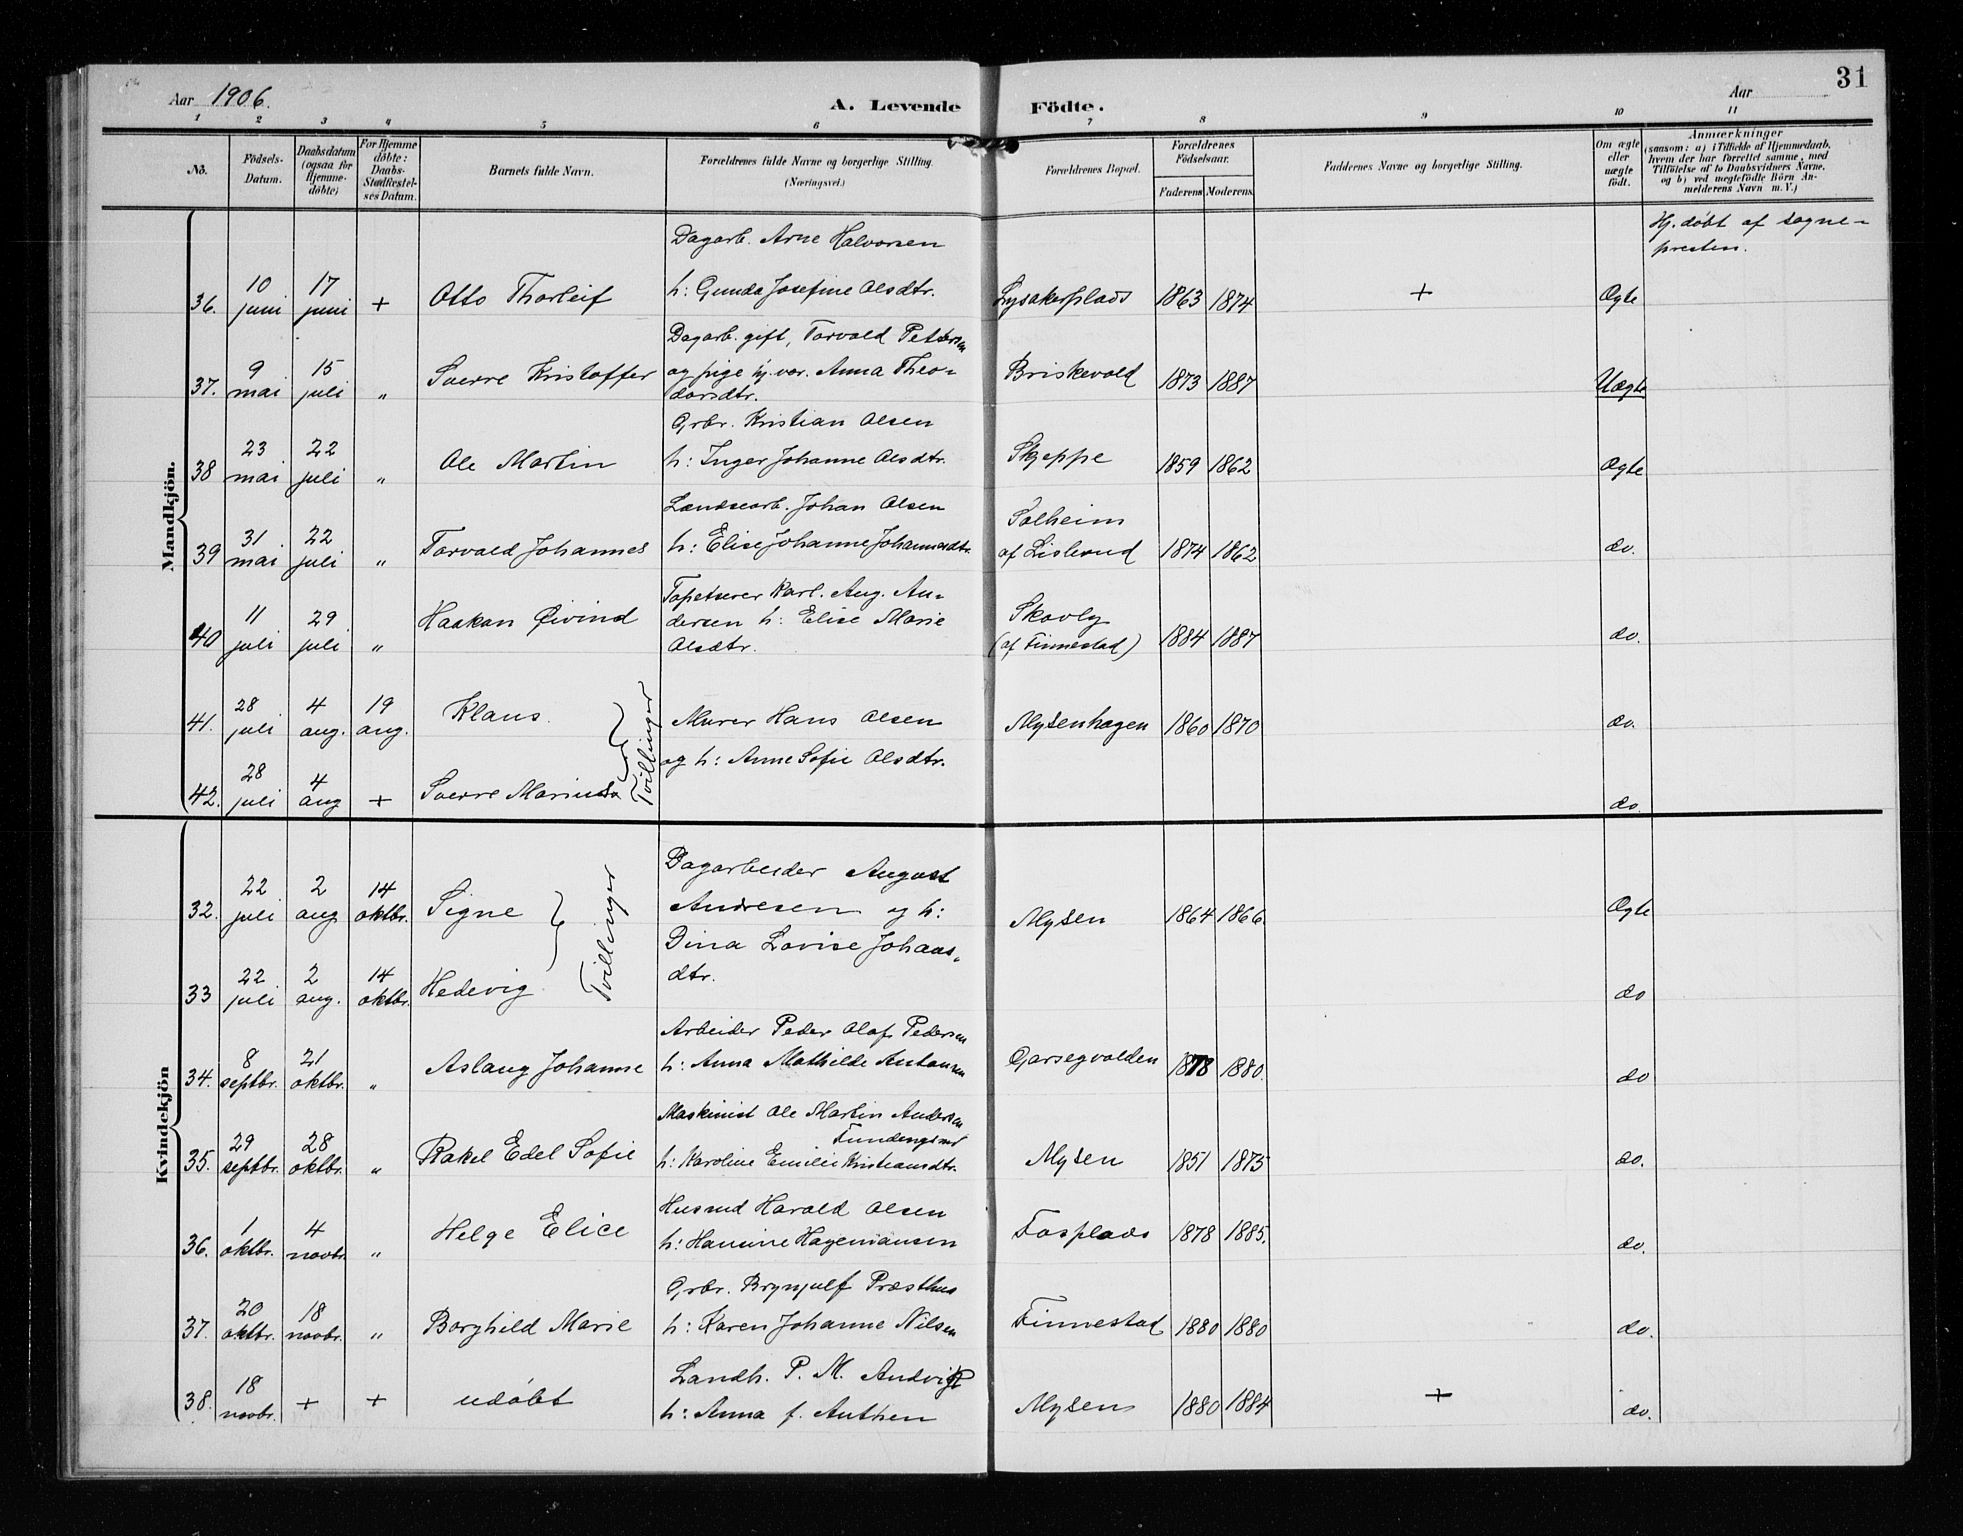 Aar 1906.
A. Levende Födte.
Aar
31
1 2 3 4 5 6 7 8 9 10 11
No.
Födsels-Datum.
Daabsdatum (ogsaa for Hjemme-döbte)
For Hjemme döbte: Daabs-Stadfæstelses Datum.
Barnets fulde Navn.
Forældrenes fulde Navne og borgerlige Stilling. (Næringsvei.)
Forældrenes Bopæl.
Forældrenes Födselsaar.
Faderens Moderens
Faddernes Navne og borgerlige Stilling.
Om ægte eller uægte födt.
Anmærkninger
(saasom: a) i Tilfælde af Hjemmedaab, hvem der har forrettet samme, med Tilföielse af to Daabsvidners Navne, og b) ved uægtefödte Börn Anmelderens Navn m. V.)
Mandkjön.
Dagarb. Arne Halvorsen
Hj. döbt af sogne-
presten.
36. 10 juni 17 juni + Otto Thorleif h: Gunda Josefine Olsdtr. Lysakerplads 1863 1874 + Ægte
Dagarb. gift, Torvald Pettersen
37. 9 mai 15 juli " Sverre Kristoffer og pige hj. vær. Anna Theo- Briskevold 1873 1887 Uægte
dorsdtr.
Grbr. Kristian Olsen
38 23 mai 22 juli " Ole Martin h: Inger Johanne Olsdtr. Skjeppe 1859 1862 Ægte
Johan Olsen Solheim
39 31 mai 22 juli " Torvald Johannes h: Elise Johanne Johannesdtr. af Lislerud 1874 1862 do.
Tapetserer Karl. Aug. An-
40 11 juli 29 juli " Haakon Øivind dersen h: Elise Marie Skovly 1884 1887 do.
Olsdtr. (af Finnestad)
41. 28 juli 4 aug. 19 aug. Klaus. Tvillinger Murer Hans Olsen Mysenhagen 1860 1870 do.
og h: Anne Sofie Olsdtr.
42. 28 juli 4 aug + Sverre Marinus do.
Kvindekjön
Dagarbeider August
32. 22 juli 2 aug 14 oktbr. Signe Tvillinger Andresen og h: Mysen 1864 1866. Ægte
Dina Lovise Johans-
33 22 juli 2 aug. 14 oktbr. Hedevig dtr. do
Arbeider Peder Olaf Pedersen
34. 8 septbr. 21 oktbr. " Aslaug Johanne h: Anna Mathilde Antonsen Garsegvolden 1878 1880. do
Maskinist Ole Martin Andersen
35. 29 septbr. 28 oktbr. " Rakel Edel Sofie h: Karoline Emilie Kristiansdtr. Mysen 1851 1875 do.
Husmd Harald Olsen
36. 1 oktbr. 4 novbr. " Helge Elice h: Hansine Fosplads 1878 1885. do.
Grbr. Brynjulf Præsthus
37. 20 oktbr. 18 novbr. " Borghild Marie h: Karen Johanne Nilsen Finnestad 1880 1880 do.
Landh. P. M. Andvig
38. 18 novbr. + + udöbt h: Anna f. Anthen Mysen 1880 1884 + do.